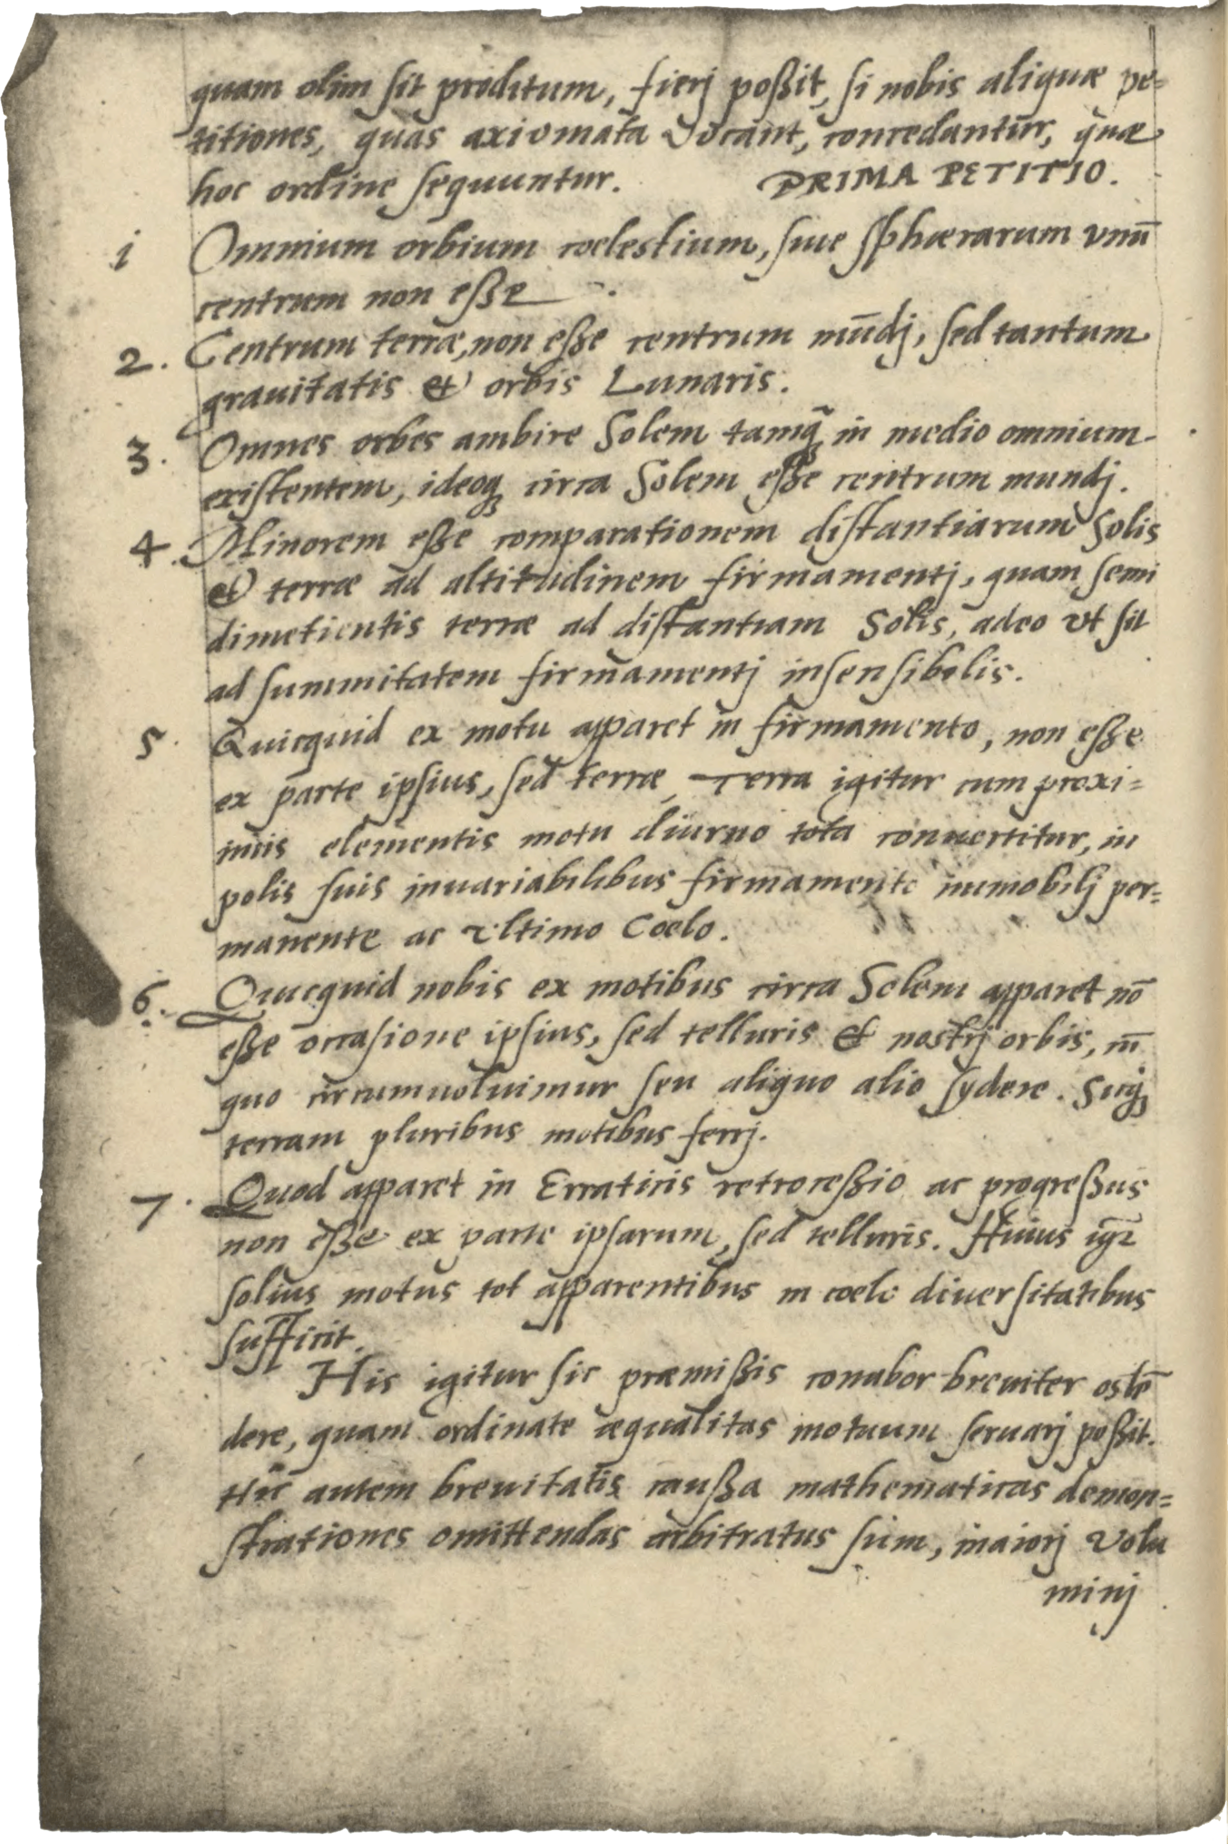 quam olim sit proditum, fierj poßit, si nobis aliquæ pe=
titiones, quas axiomata vocant, concedantur, quæ
hoc ordine sequuntur. PRIMA PETITIO.
1 Omnium orbium coelestium, siue sphærarum vnū
centrum non eße.
2. Centrum terræ, non eße centrum mūdj, sed tantum
grauitatis et orbis Lunaris.
3. Omnes orbes ambire Solem tamq̃ in medio omnium
existentem, ideoq; circa Solem eße centrum mundj.
4. Minorem eße comparationem distantiarum Solis
et terræ ad altitudinem firmamentj, quam semi
dimetientis terræ ad distantiam Solis, adeo vt sit
ad summitatem firmamentj insensibilis.
5. Quicquid ex motu apparet in firmamento, non eße
ex parte ipsius, sed terræ, Terra igitur cum proxi=
mis elementis motu diurno tota conuertitur, in
polis suis inuariabilibus firmamento immobilj per=
manente ac vltimo Coelo.
6. Quicquid nobis ex motibus circa Solem apparet nō
eße occasione ipsius, sed telluris et nostrj orbis, in
quo circumuoluimur seu aliquo alio sydere. Sicq;
terram pluribus motibus ferrj.
7. Quod apparet in Erraticis retroceßio ac progreßus
non eße ex parte ipsarum, sed telluris. Huius igr̃
solius motus tot apparentibus in coelo diuersitatibus
sufficit.
His igitur sic præmißis conabor breuiter ostē
dere, quam ordinate æqualitas motuum seruarj poßit.
Hic autem breuitatis caußa mathematicas demon=
strationes omittendas arbitratus sum, maiorj volu
minj